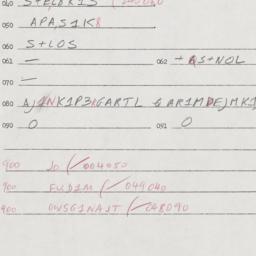 050 APAS1K8
060 S+LOS
061 — 062 +AS+NOL
070 —
080 AJINK1P3KGARTL & AR1MDEJMK1
090 0 091 0
900 JO (/004050
900 FUD1M (/049040
900 OWSG1NAJT (/048090